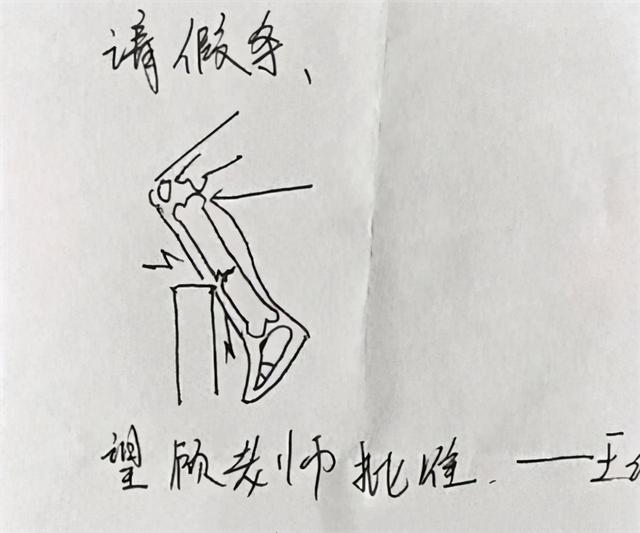 请假条、
望顾老师批准.——王